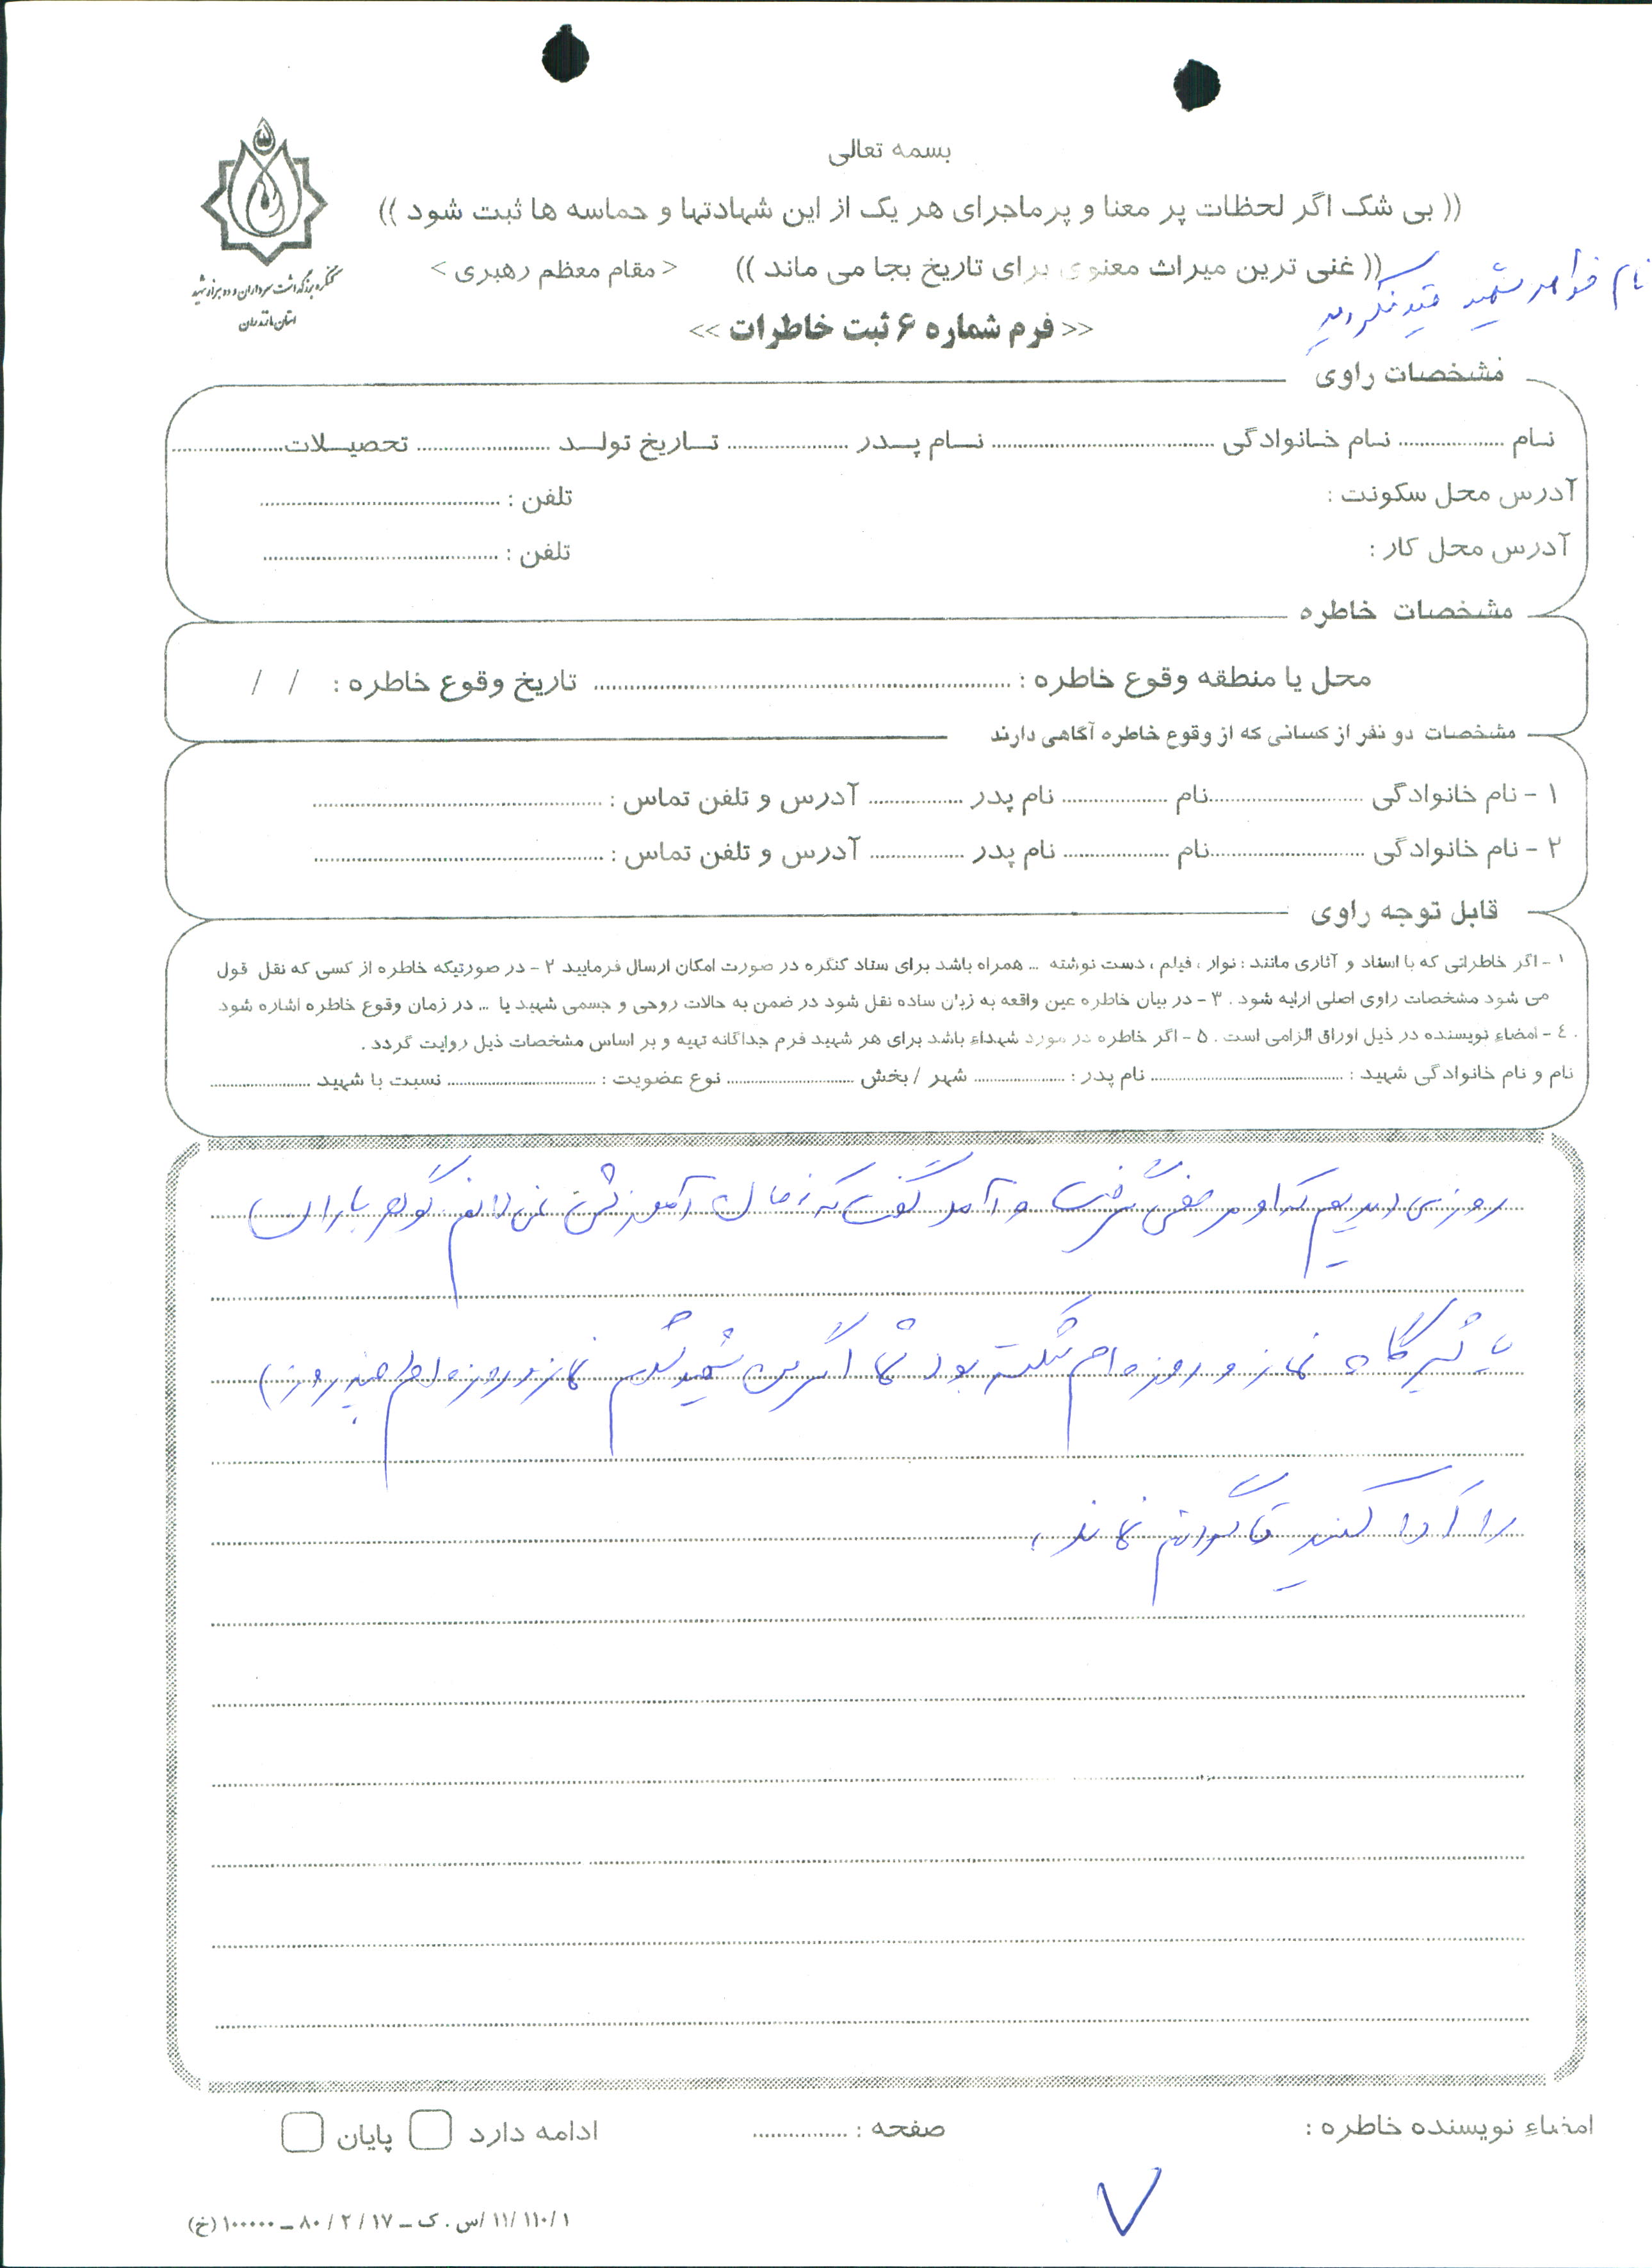 بسمه تعالی
(( بی شک اگر لحظات پر معنا و پرماجرای هر یک از این شهادتها و حماسه ها ثبت شود ))
(( غنی ترین میراث معنوی برای تاریخ بجا می ماند )) < مقام معظم رهبری >
کنگره بزرگداشت سرداران و ده هزار شهید
استان مازندران
نام خواهر شهید قید نگردید
<< فرم شماره ۶ ثبت خاطرات >>
مشخصات راوی
نام .......... نام خانوادگی .......... نام پدر .......... تاریخ تولد .......... تحصیلات ..........
آدرس محل سکونت : تلفن : ..........
آدرس محل کار : تلفن : ..........
مشخصات خاطره
محل یا منطقه وقوع خاطره : .......... تاریخ وقوع خاطره : / /
مشخصات دو نفر از کسانی که از وقوع خاطره آگاهی دارند
۱ - نام خانوادگی .......... نام .......... نام پدر .......... آدرس و تلفن تماس : ..........
۲ - نام خانوادگی .......... نام .......... نام پدر .......... آدرس و تلفن تماس : ..........
قابل توجه راوی
۱ - اگر خاطراتی که با اسناد و آثاری مانند : نوار ، فیلم ، دست نوشته ... همراه باشد برای ستاد کنگره در صورت امکان ارسال فرمایید ۲ - در صورتیکه خاطره از کسی که نقل قول
می شود مشخصات راوی اصلی ارایه شود . ۳ - در بیان خاطره عین واقعه به زبان ساده نقل شود در ضمن به حالات روحی و جسمی شهید یا ... در زمان وقوع خاطره اشاره شود
. ٤ - امضاء نویسنده در ذیل اوراق الزامی است . ۵ - اگر خاطره در مورد شهداء باشد برای هر شهید فرم جداگانه تهیه و بر اساس مشخصات ذیل روایت گردد .
نام و نام خانوادگی شهید : .......... نام پدر : .......... شهر / بخش .......... نوع عضویت : .......... نسبت با شهید ..........
روزی دیدیم که او مرخصی گرفت و آمد گفت که زمان آموزشی نمی دانم گوهرباران
یا شیرگاه نماز و روزه ام شکسته بود شما اگر من شهید شدم نماز و روزه ام (چند روز)
را ادا کنید تا گردنم نماند.
امضاء نویسنده خاطره : صفحه : .......... ادامه دارد پایان
۱۱/۱۱۰/۱/س . ک – ۸۰/۲/۱۷ – ۱۰۰۰۰۰ (خ)